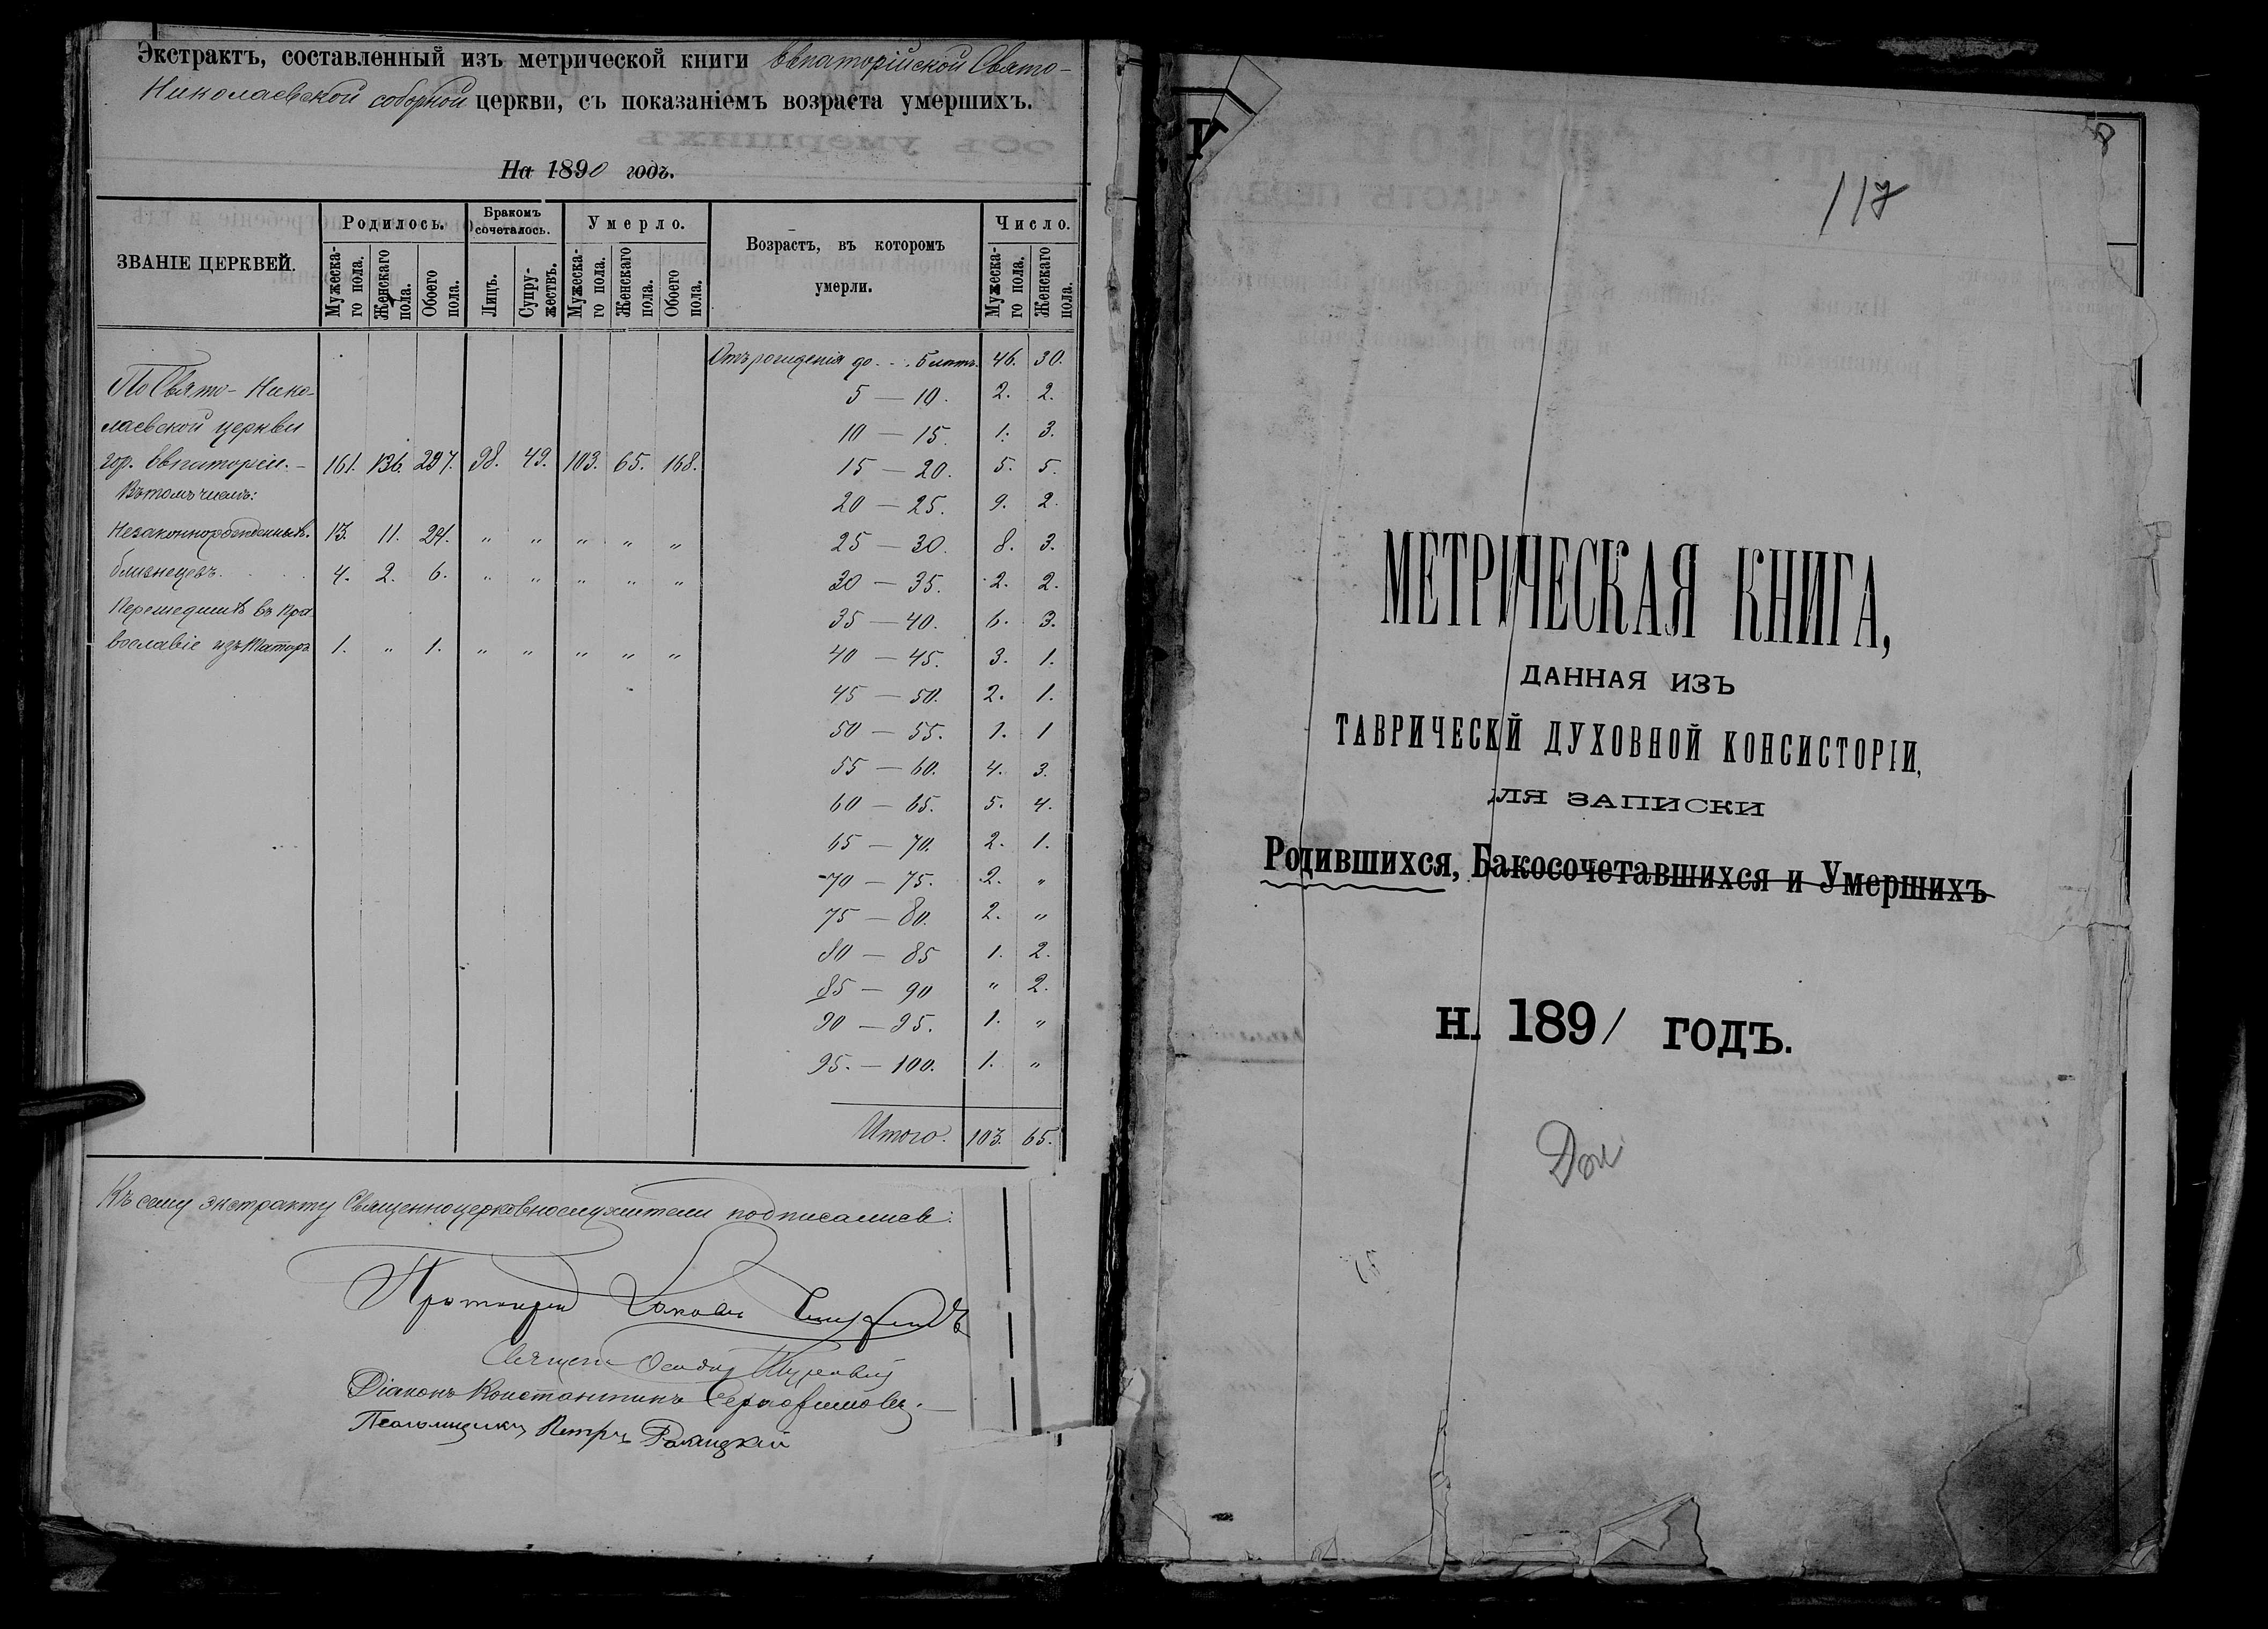 Экстрактъ, составленный изъ метрической книги Евпаторійской Свято-
Николаевской соборной церкви, съ показаніемъ возраста умершихъ.
На 1890 годъ.
ЗВАНІЕ ЦЕРКВЕЙ.
Родилось.
Бракомъ сочеталось.
Умерло.
Возрастъ, въ которомъ умерли.
Число.
Мужеска-го пола.
Женскаго пола.
Обоего пола.
Лицъ.
Супру-жествъ.
Мужеска-го пола.
Женскаго пола.
Обоего пола.
Мужеска-го пола.
Женскаго пола.
По Свято-Нико-
лаевской церкви
гор. Евпаторіи. – 161. 136. 297. 98. 49. 103. 65. 168.
Въ томъ числѣ:
Незаконнорожденныхъ. 13. 11. 24. " " " " "
близнецовъ. 4. 2. 6. " " " " "
Перешедшихъ въ пра-
вославіе изъ татаръ 1. " 1. " " " " "
Отъ рожденія до . . . 5 лѣтъ. 46. 30.
5 — 10. 2. 2.
10 — 15. 1. 3.
15 — 20. 5. 5.
20 — 25. 9. 2.
25 — 30. 8. 3.
30 — 35. 2. 2.
35 — 40. 6. 3.
40 — 45. 3. 1.
45 — 50. 2. 1.
50 — 55. 1. 1
55 — 60. 4. 3.
60 — 65. 5. 4.
65 — 70. 2. 1.
70 — 75. 2. "
75 — 80. 2. "
80 — 85 1. 2.
85 — 90 " 2.
90 — 95. 1. "
95. — 100. 1. "
Итого. 103. 65.
Къ сему экстракту Священноцерковнослужители подписались:
Протоіерей
Діаконъ Константинъ Серафимовъ.
Псаломщикъ Петръ
117
МЕТРИЧЕСКАЯ КНИГА,
ДАННАЯ ИЗЪ
ТАВРИЧЕСКЙ ДУХОВНОЙ КОНСИСТОРІИ,
ЛЯ ЗАПИСКИ
Родившихся, Бакосочетавшихся и Умершихъ
Н. 1891 ГОДЪ.